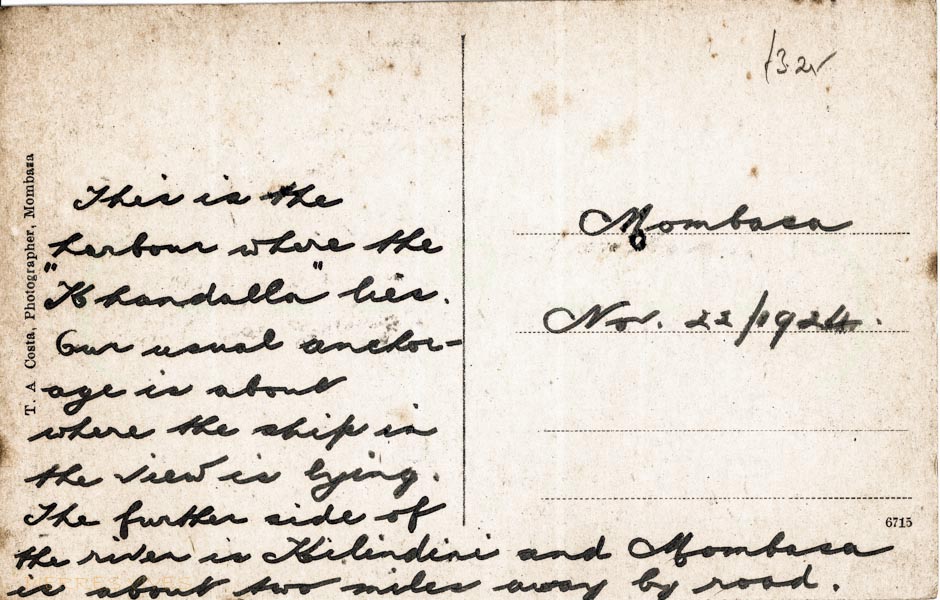 This is the
harbour where the
"Khandalla" lies.
Our usual anchor-
age is about
where the ship in
the view is lying.
The further side of
the river is Kilindini and Mombasa
is about two miles away by road.
Mombasa
Nov. 22/1924.
T. A Costa, Photographer, Mombasa
6715